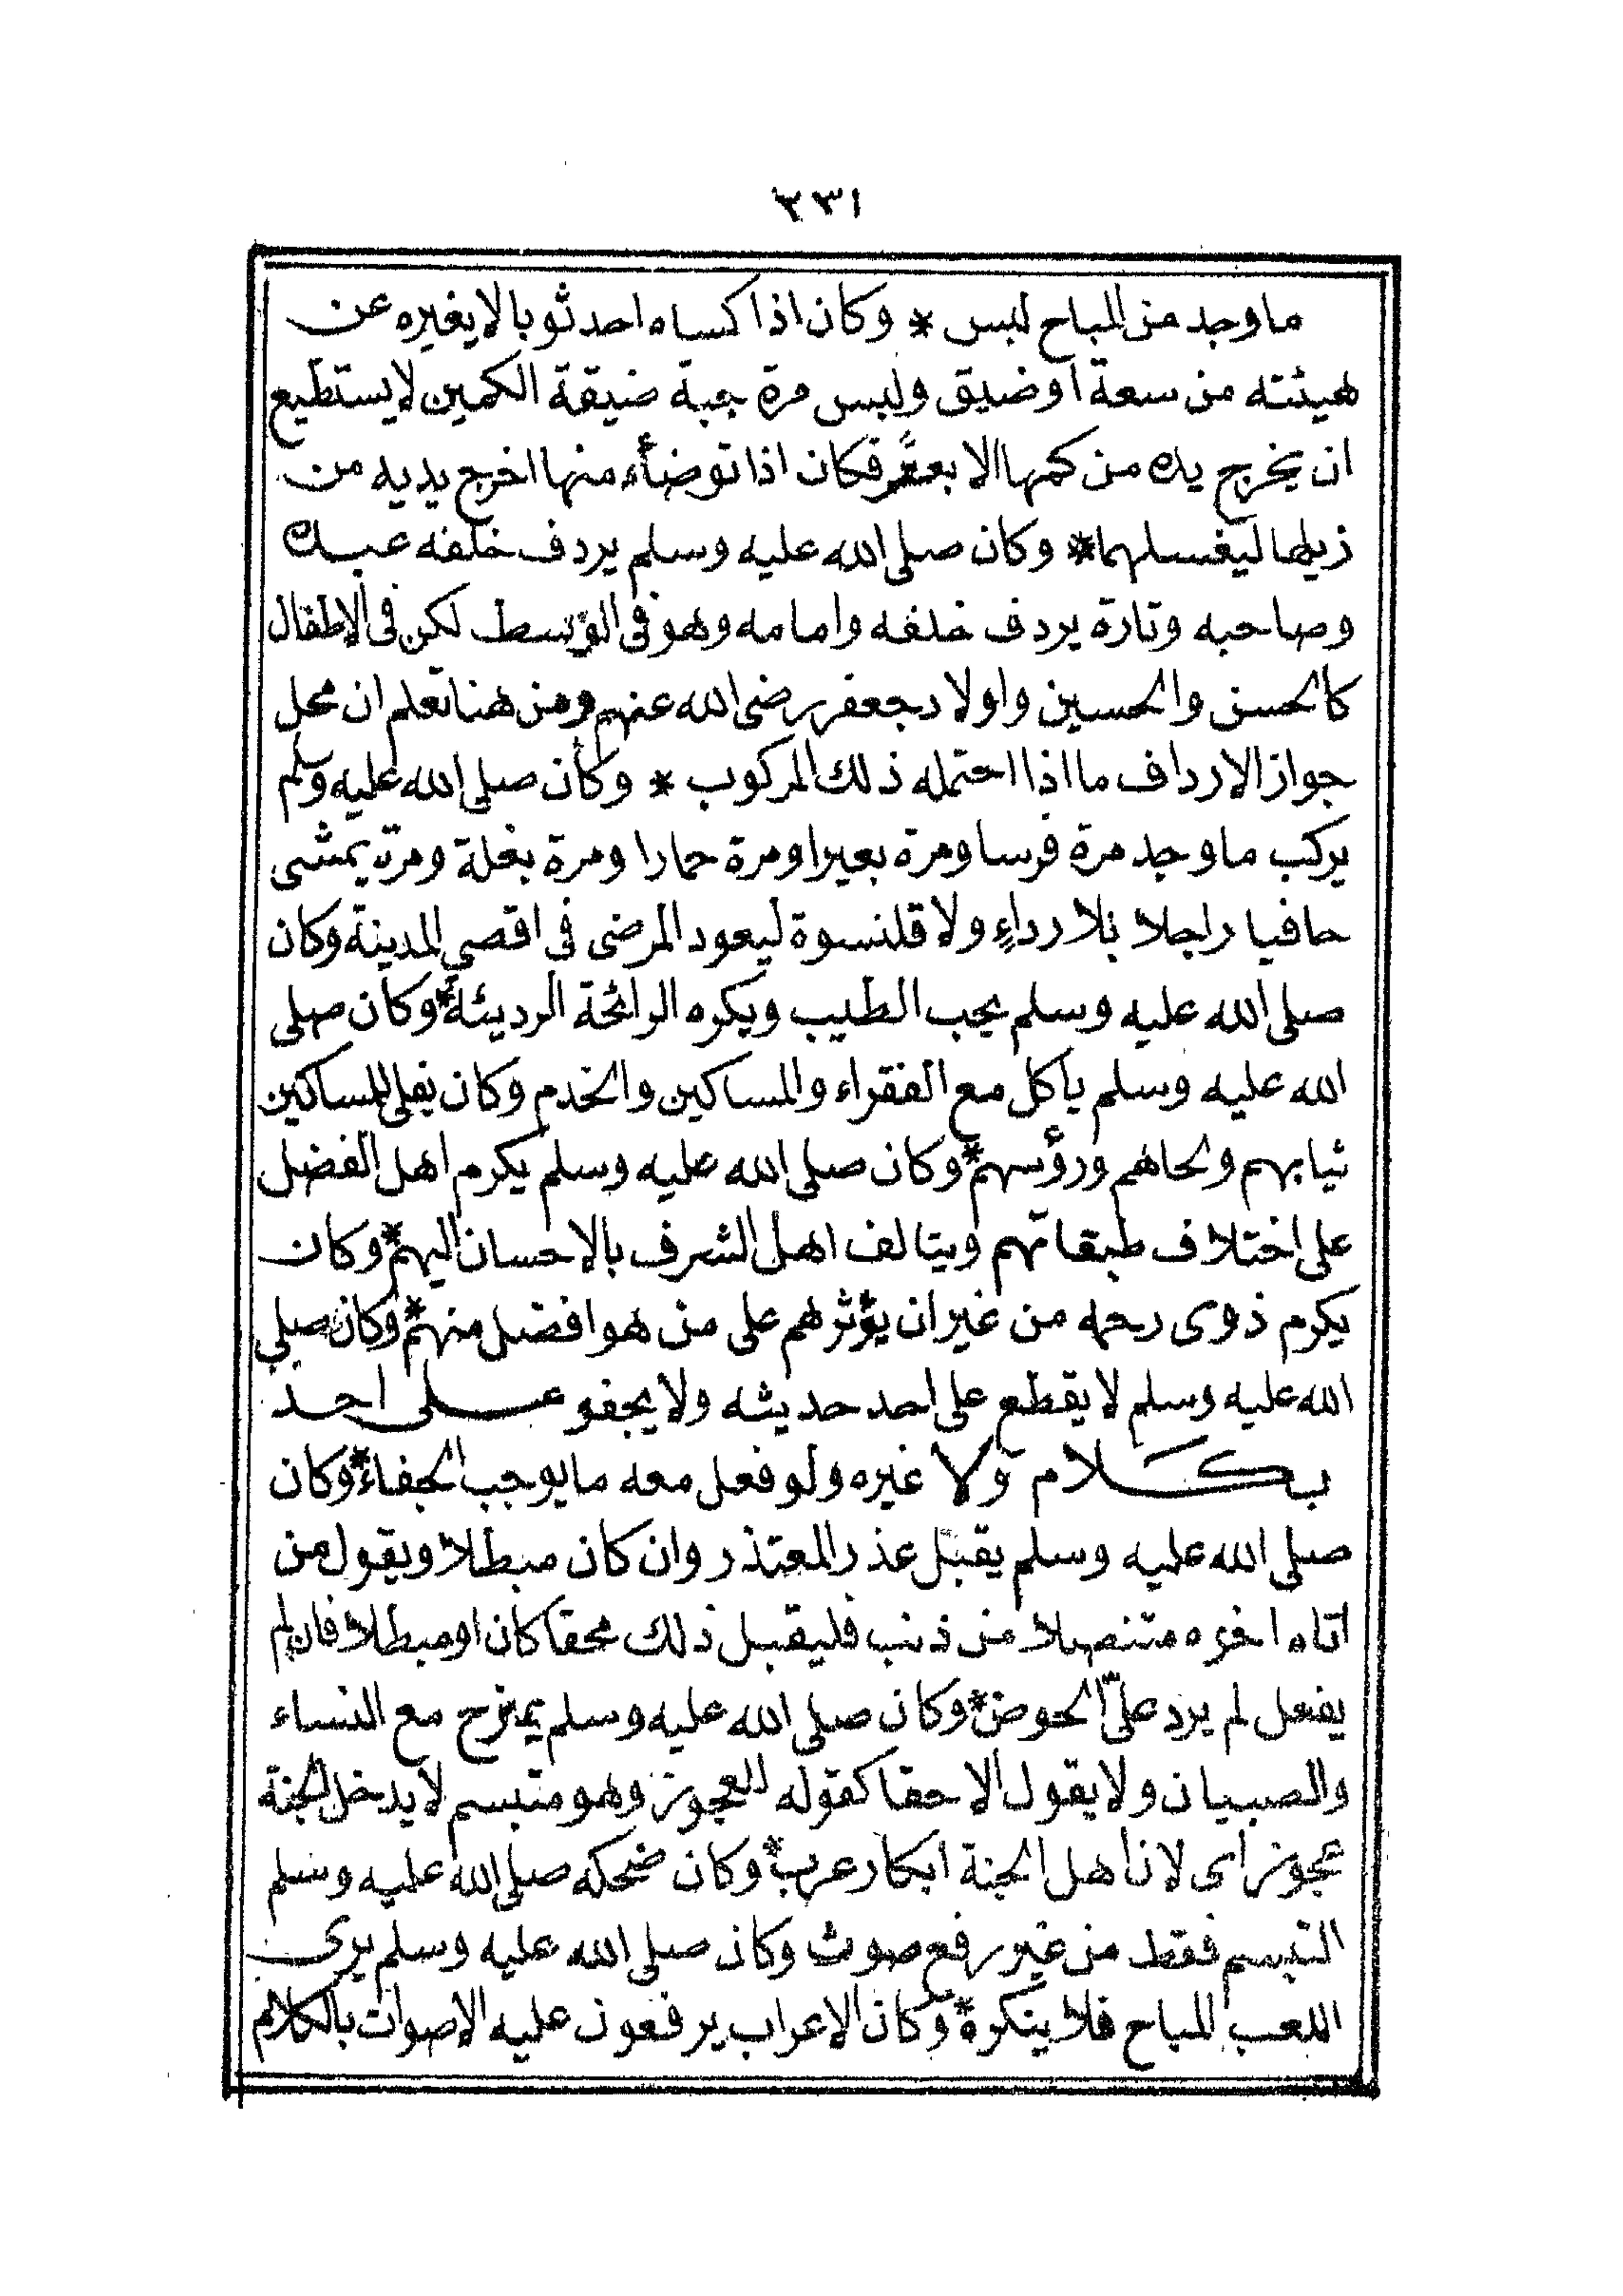 ٢٣١
ما وجد من المباح لبس * وكان اذا كساه احد ثوبا لا يغيره عن
هيئته من سعة او ضيق ولبس مرة جبة ضيقة الكمين لا يستطيع
ان يخرج يده من كمها الا بعسر فكان اذا توضأ منها اخرج يديه من
ذيلها ليغسلهما * وكان صلى الله عليه وسلم يردف خلفه عبده
وصاحبه وتارة يردف خلفه وامامه وهو فى الوسط لكن فى الاطفال
كالحسن والحسين واولاد جعفر رضى الله عنهم ومن هنا تعلم ان محل
جواز الارداف ما اذا احتمله ذلك المركوب * وكان صلى الله عليه وسلم
يركب ما وجد مرة فرسا ومرة بعيرا ومرة حمارا ومرة بغلة ومرة يمشى
حافيا راجلا بلا رداءٍ ولا قلنسوة ليعود المرضى فى اقصى المدينة وكان
صلى الله عليه وسلم يحب الطيب ويكره الرائحة الرديئة * وكان صلى
الله عليه وسلم يأكل مع الفقراء والمساكين والخدم وكان يفلى للمساكين
ثيابهم ولحاهم ورؤسهم * وكان صلى الله عليه وسلم يكرم اهل الفضل
على اختلاف طبقاتهم ويتالف اهل الشرف بالاحسان اليهم * وكان
يكرم ذوى رحمه من غير ان يؤثرهم على من هو افضل منهم * وكان صلى
الله عليه وسلم لا يقطع على احد حديثه ولا يجفو على احد
بكلام ولا غيره ولو فعل معه ما يوجب الجفاء * وكان
صلى الله عليه وسلم يقبل عذر المعتذر وان كان مبطلا ويقول من
اتاه اخوه متنصلا من ذنب فليقبل ذلك محقا كان او مبطلا فان لم
يفعل لم يرد علىّ الحوض * وكان صلى الله عليه وسلم يمزح مع النساء
والصبيان ولا يقول الا حقا كقوله للعجوز وهو متبسم لا يدخل الجنة
عجوز اى لان اهل الجنة ابكار عرب * وكان ضحكه صلى الله عليه وسلم
التبسم فقط من غير رفع صوت وكان صلى الله عليه وسلم يرى
اللعب المباح فلا ينكره * وكان الاعراب يرفعون عليه الاصوات بالكلام